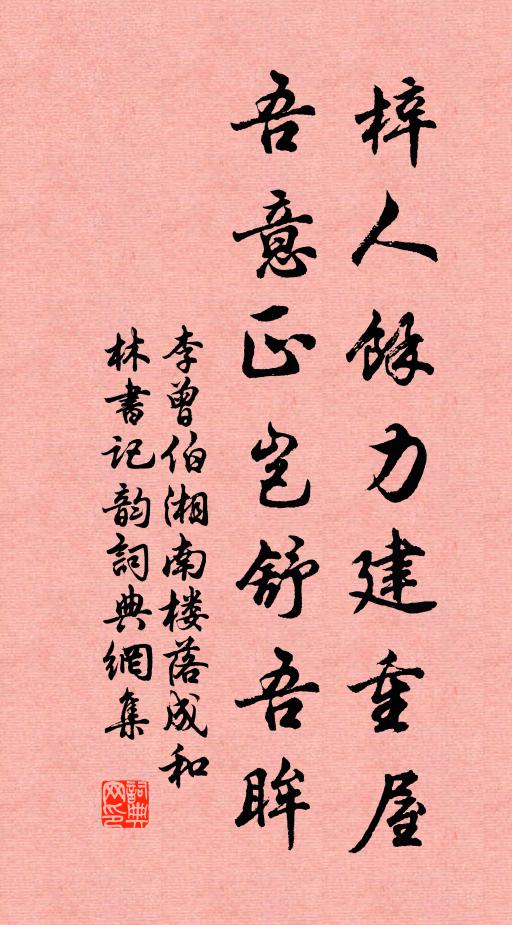 梓人餘力建重屋
吾意正豈舒吾眸
李曾伯湘南楼落成和
林書記韵詞典網集
詞典网印